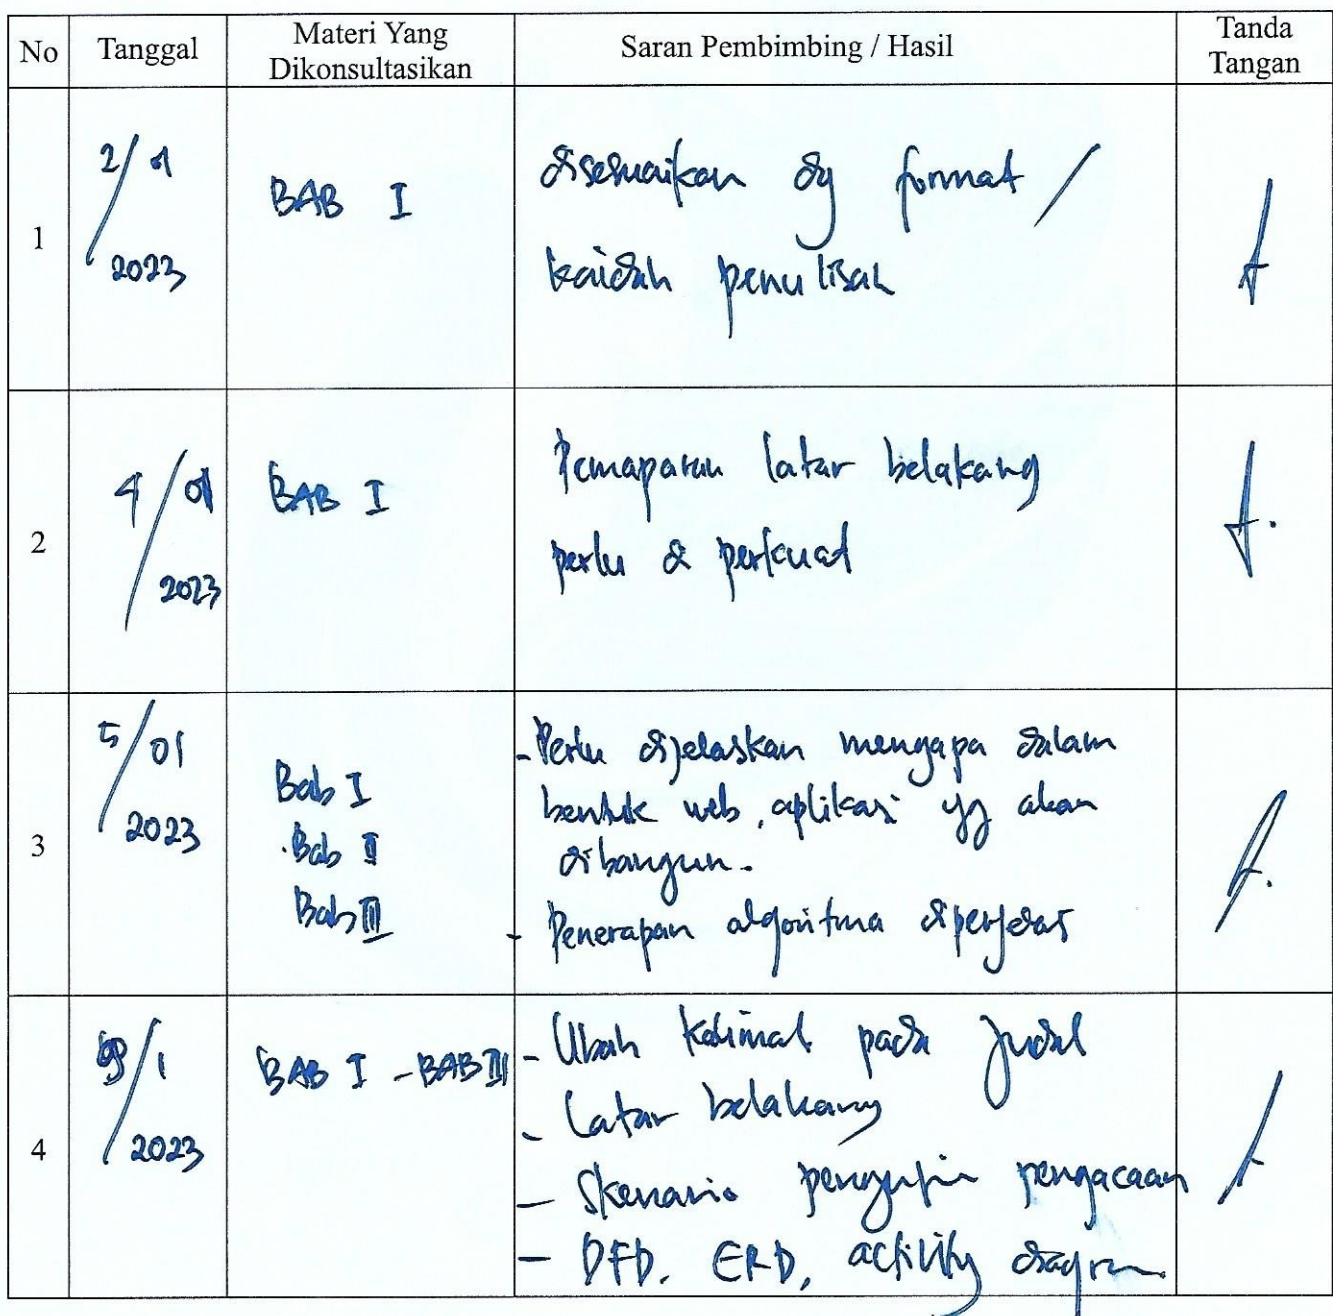 No
Tanggal
Materi Yang
Dikonsultasikan
Saran Pembimbing / Hasil
Tanda
Tangan
1
2/01
2023
BAB I
disesuaikan dg format /
kaidah penulisan
2
4/01
2023
BAB I
Pemaparan latar belakang
perlu di perkuat
3
5/01
2023
Bab I
Bab II
Bab III
- Perlu dijelaskan mengapa dalam
bentuk web, aplikasi yg akan
dibangun.
- Penerapan algoritma diperjelas
4
/1
2023
BAB I - BAB III
- Ubah kalimat pada judul
- Latar belakang
- Skenario pengacaan
- DFD, ERD, activity diagram